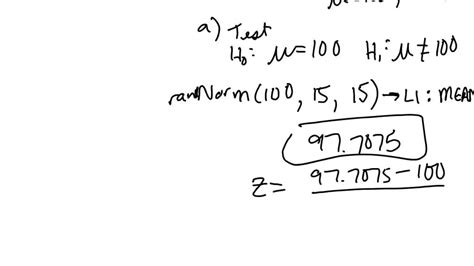 a) Test
H₀: μ=100 H₁: μ≠100
randNorm(100, 15, 15)→L1: MEAN
97.7075
z= 97.7075-100